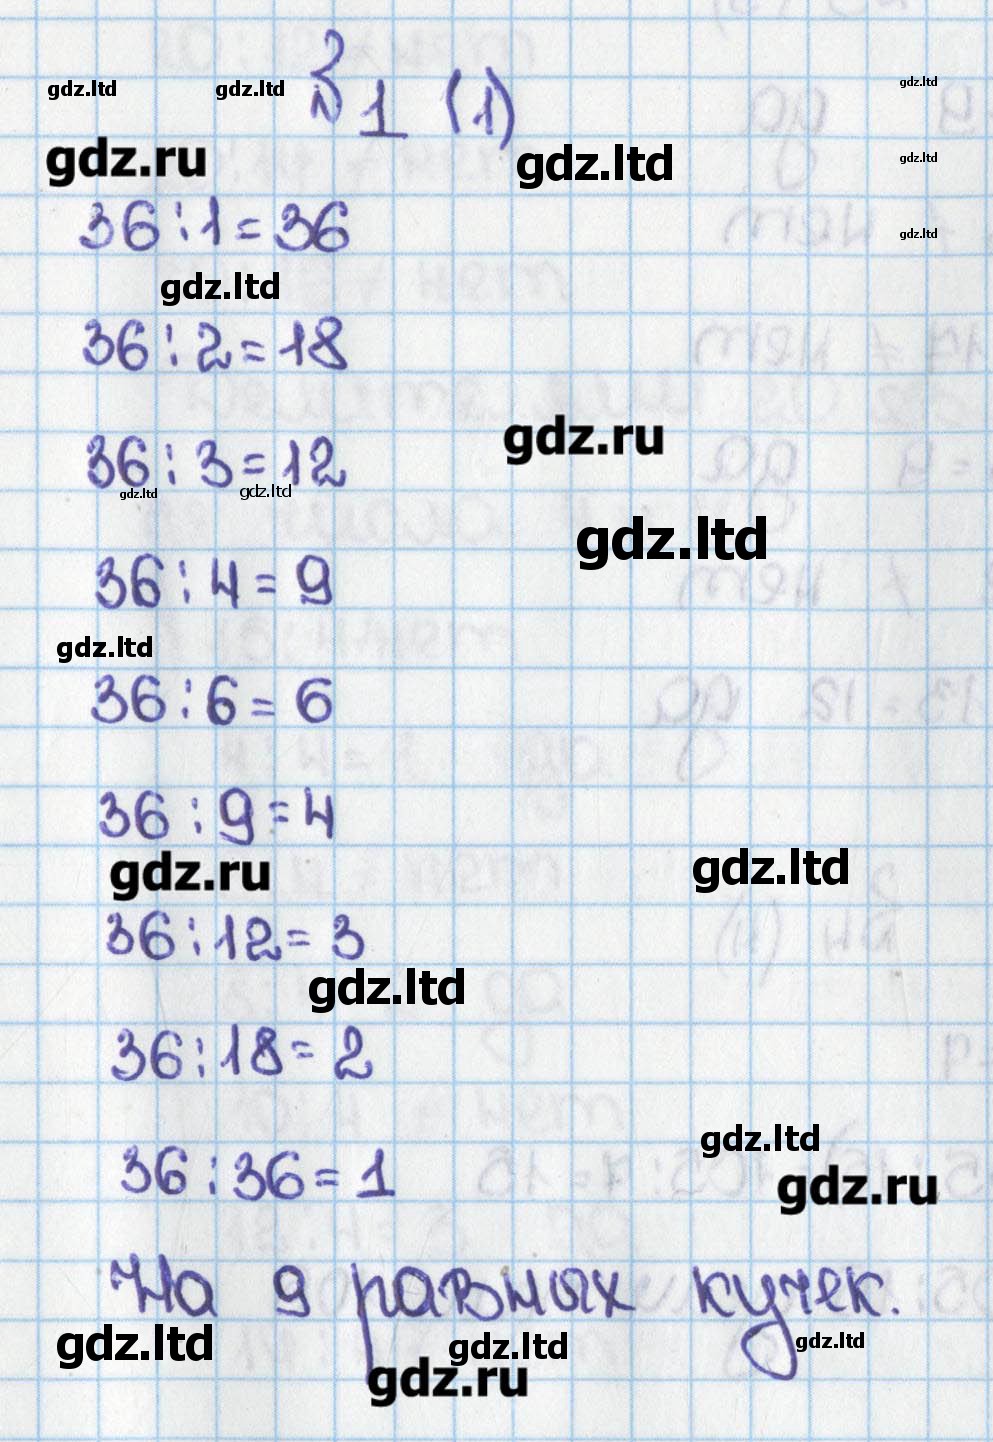 № 1 (1)
gdz.ltd gdz.ltd gdz.ltd
gdz.ru gdz.ltd gdz.ltd
36 : 1 = 36
gdz.ltd
gdz.ltd
36 : 2 = 18
gdz.ru
36 : 3 = 12
gdz.ltd gdz.ltd
gdz.ltd
36 : 4 = 9
gdz.ltd
36 : 6 = 6
36 : 9 = 4
gdz.ru gdz.ltd
36 : 12 = 3
gdz.ltd
36 : 18 = 2
gdz.ltd
36 : 36 = 1
gdz.ru
На 9 равных кучек.
gdz.ltd gdz.ltd gdz.ltd
gdz.ru